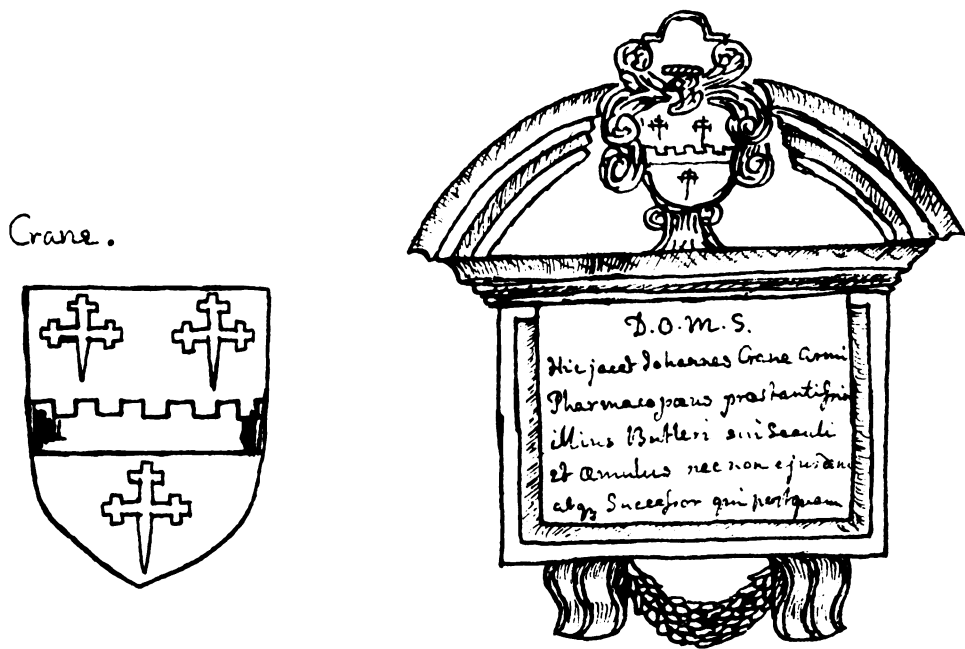 Crane.
D. O. M. S.
Hic jacet Johannes Crane Armi
Pharmacopœus præstantissim
illius Butleri sui Seculi
et Æmulus nec non ejusdem
atq Successor qui postquam